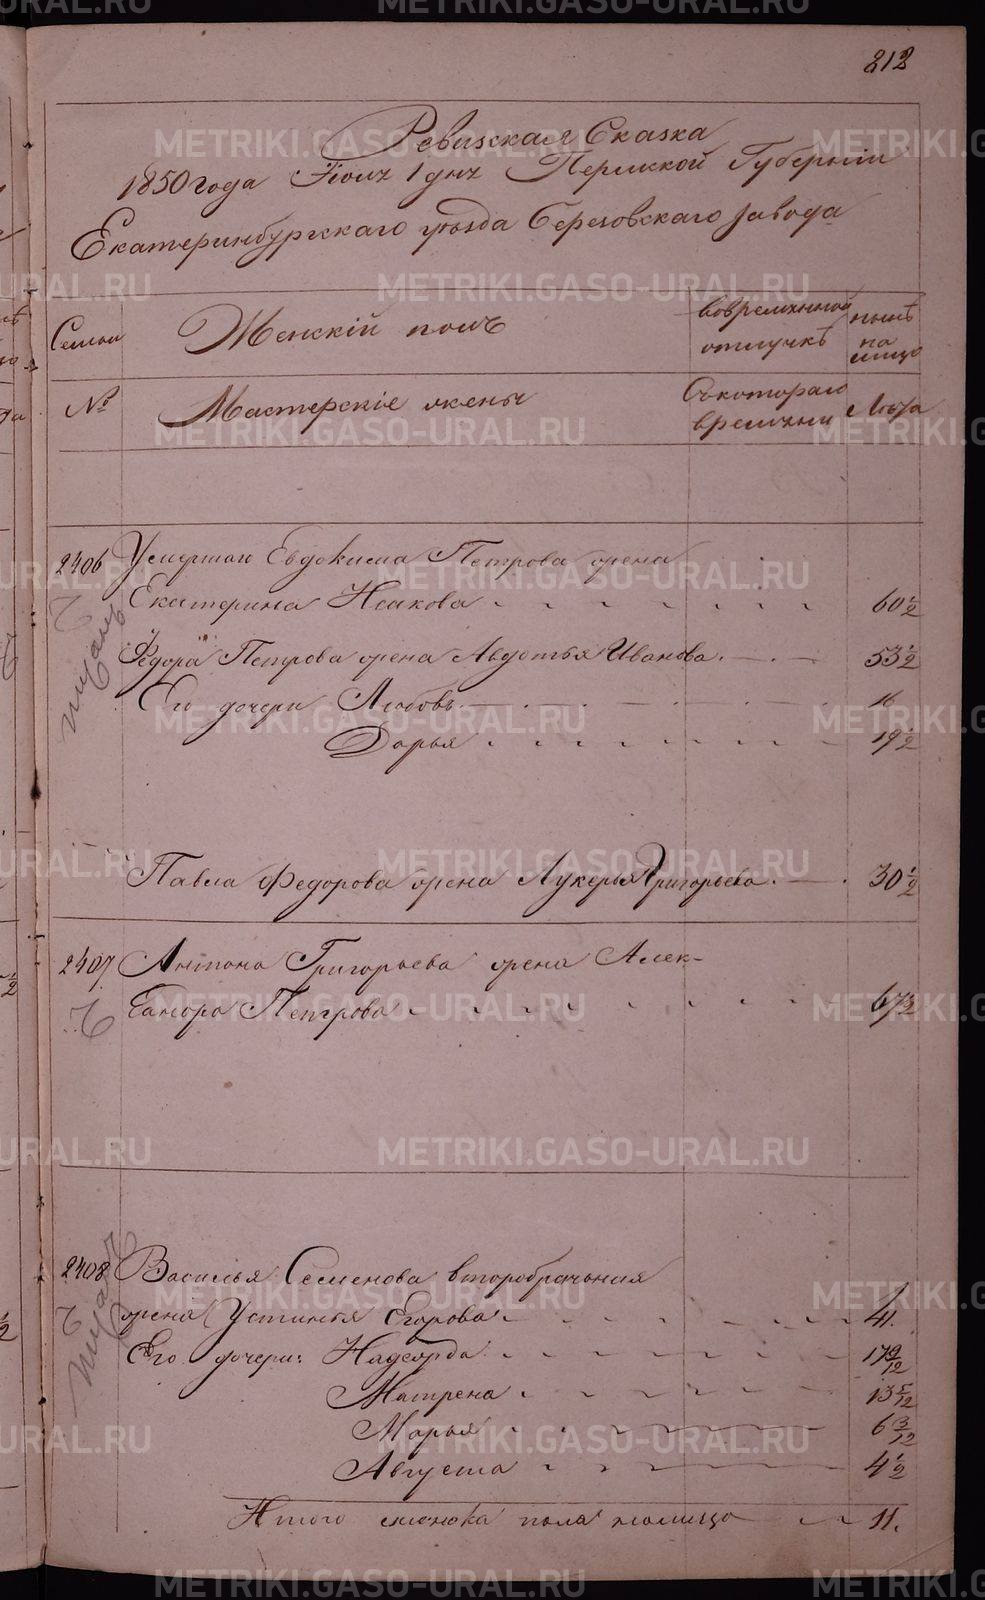 212
Ревизская Сказка
1850 года Июлъ 1 дня Пермской Губерніи
Екатеринбургскаго уѣзда Березовскаго завода
Семьи Женскій полъ вовременной отлучкѣ нынѣ на лицо
№ Мастерскіе жены Съкотораго времени Лѣта
2406 Умершаго Евдокима Петрова жена
Екатерина Исакова 60 1/2
Федора Петрова жена Авдотья Иванова 53 1/2
Его дочери Любовь 16
Дарья 19 1/2
Павла Федорова жена Лукерья Григорьева 30 1/2
2407 Антона Григорьева жена Алек-
сандра Петрова 67 1/2
2408 Василья Семенова второбрачьная
жена Устинья Егорова 41.
Его дочери: Надежда 17 9/12
Матрена 13 5/12
Марья 6 3/12
Августа 4 1/2
Итого женска пола налицо 11.
METRIKI.GASO-URAL.RU